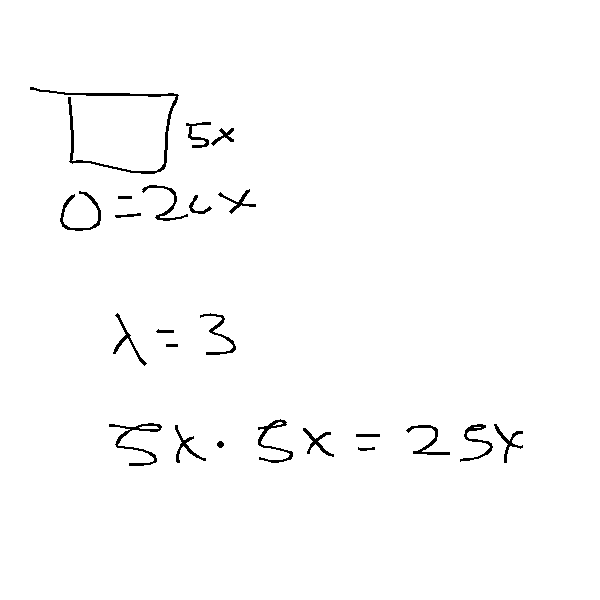 5x
O=20x
λ=3
5x·5x=25x